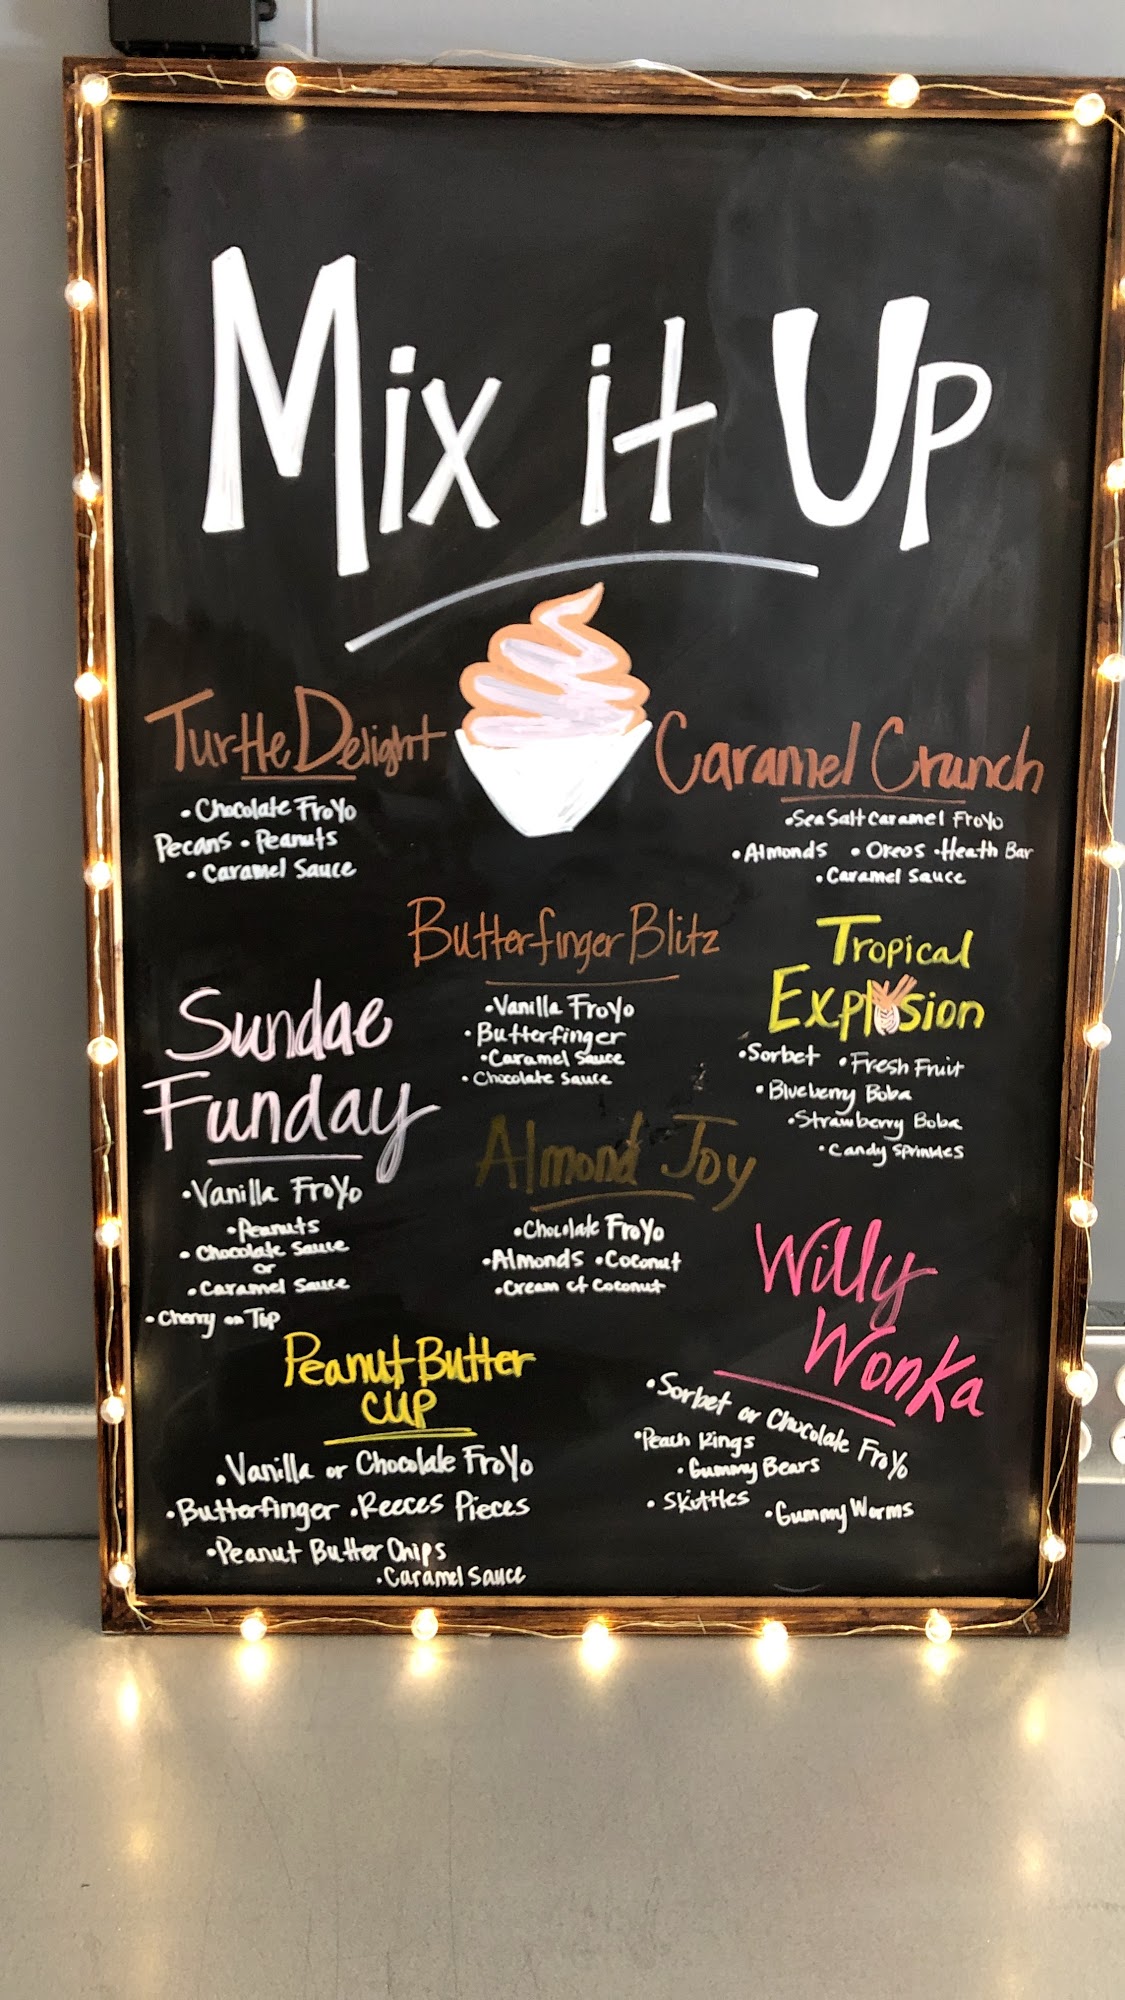 Mix it Up
Turtle Delight
• Chocolate FroYo
Pecans • Peanuts
• Caramel Sauce
Caramel Crunch
• Sea Salt Caramel FroYo
• Almonds • Oreos • Heath Bar
• Caramel Sauce
Butterfinger Blitz
• Vanilla FroYo
• Butterfinger
• Caramel Sauce
• Chocolate Sauce
Tropical
Explosion
• Sorbet • Fresh Fruit
• Blueberry Boba
• Strawberry Boba
• Candy Sprinkles
Sundae
Funday
• Vanilla FroYo
• Peanuts
• Chocolate Sauce
or
• Caramel Sauce
• Cherry on Top
Almond Joy
• Chocolate FroYo
• Almonds • Coconut
• Cream of Coconut
Willy
Wonka
• Sorbet or Chocolate FroYo
• Peach Rings
• Gummy Bears
• Skittles
• Gummy Worms
Peanut Butter
Cup
• Vanilla or Chocolate FroYo
• Butterfinger • Reeces Pieces
• Peanut Butter Chips
• Caramel Sauce